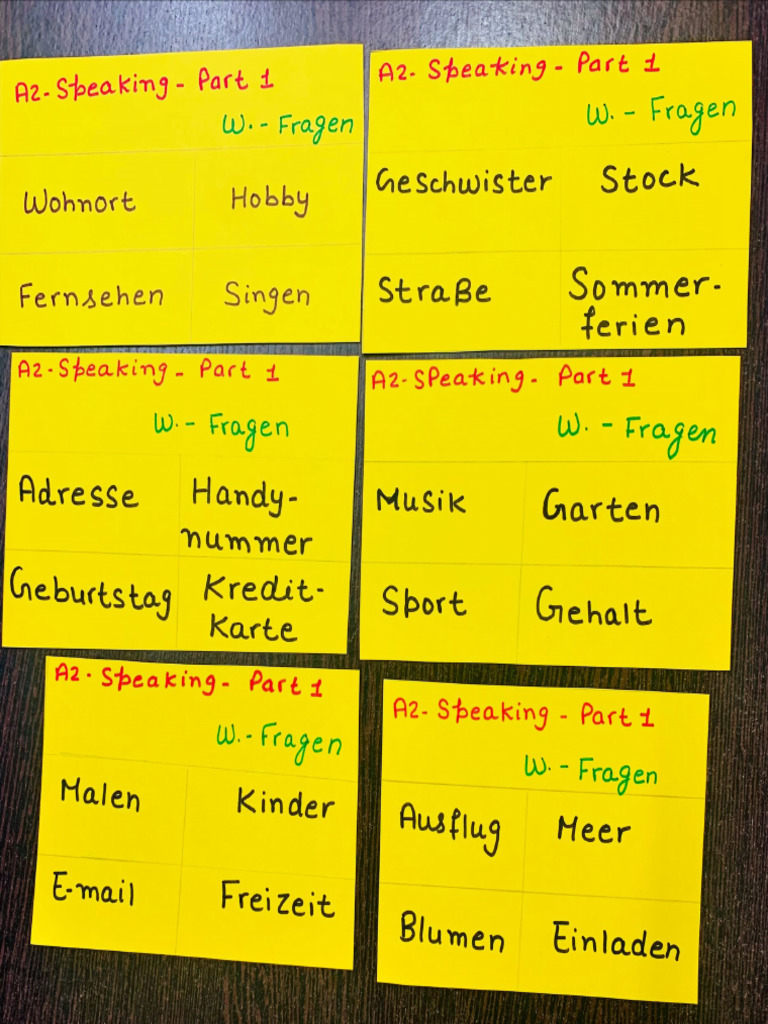 A2-Speaking - Part 1
W. - Fragen
Wohnort Hobby
Fernsehen Singen
A2- Speaking - Part 1
W. - Fragen
Geschwister Stock
Straße Sommer-
ferien
A2-Speaking - Part 1
W. - Fragen
Adresse Handy-
nummer
Geburtstag Kredit-
Karte
A2-Speaking - Part 1
W. - Fragen
Musik Garten
Sport Gehalt
A2- Speaking - Part 1
W. - Fragen
Malen Kinder
E-mail Freizeit
A2- Speaking - Part 1
W. - Fragen
Ausflug Meer
Blumen Einladen